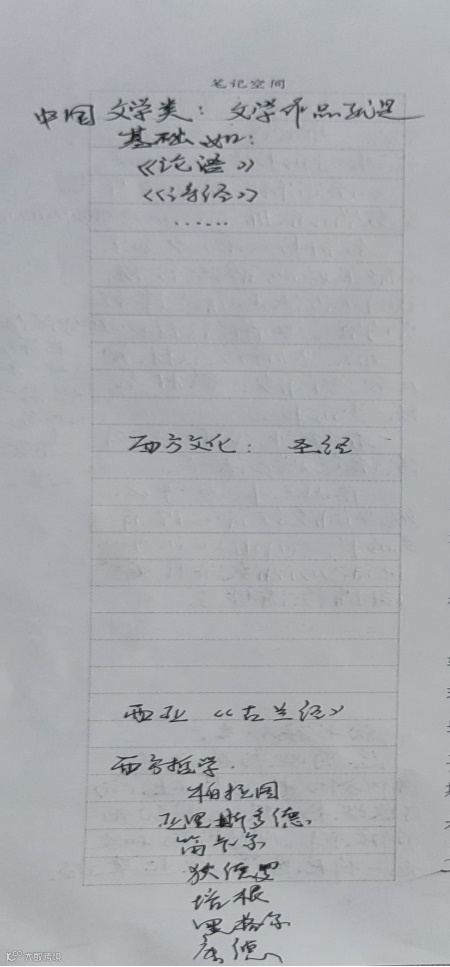 笔记空间
中国文学类：文学作品
基础如：
《论语》
《诗经》
……
西方文化：圣经
西亚《古兰经》
西方哲学.
柏拉图
亚里斯多德.
笛卡尔
狄德罗
培根
黑格尔
康德